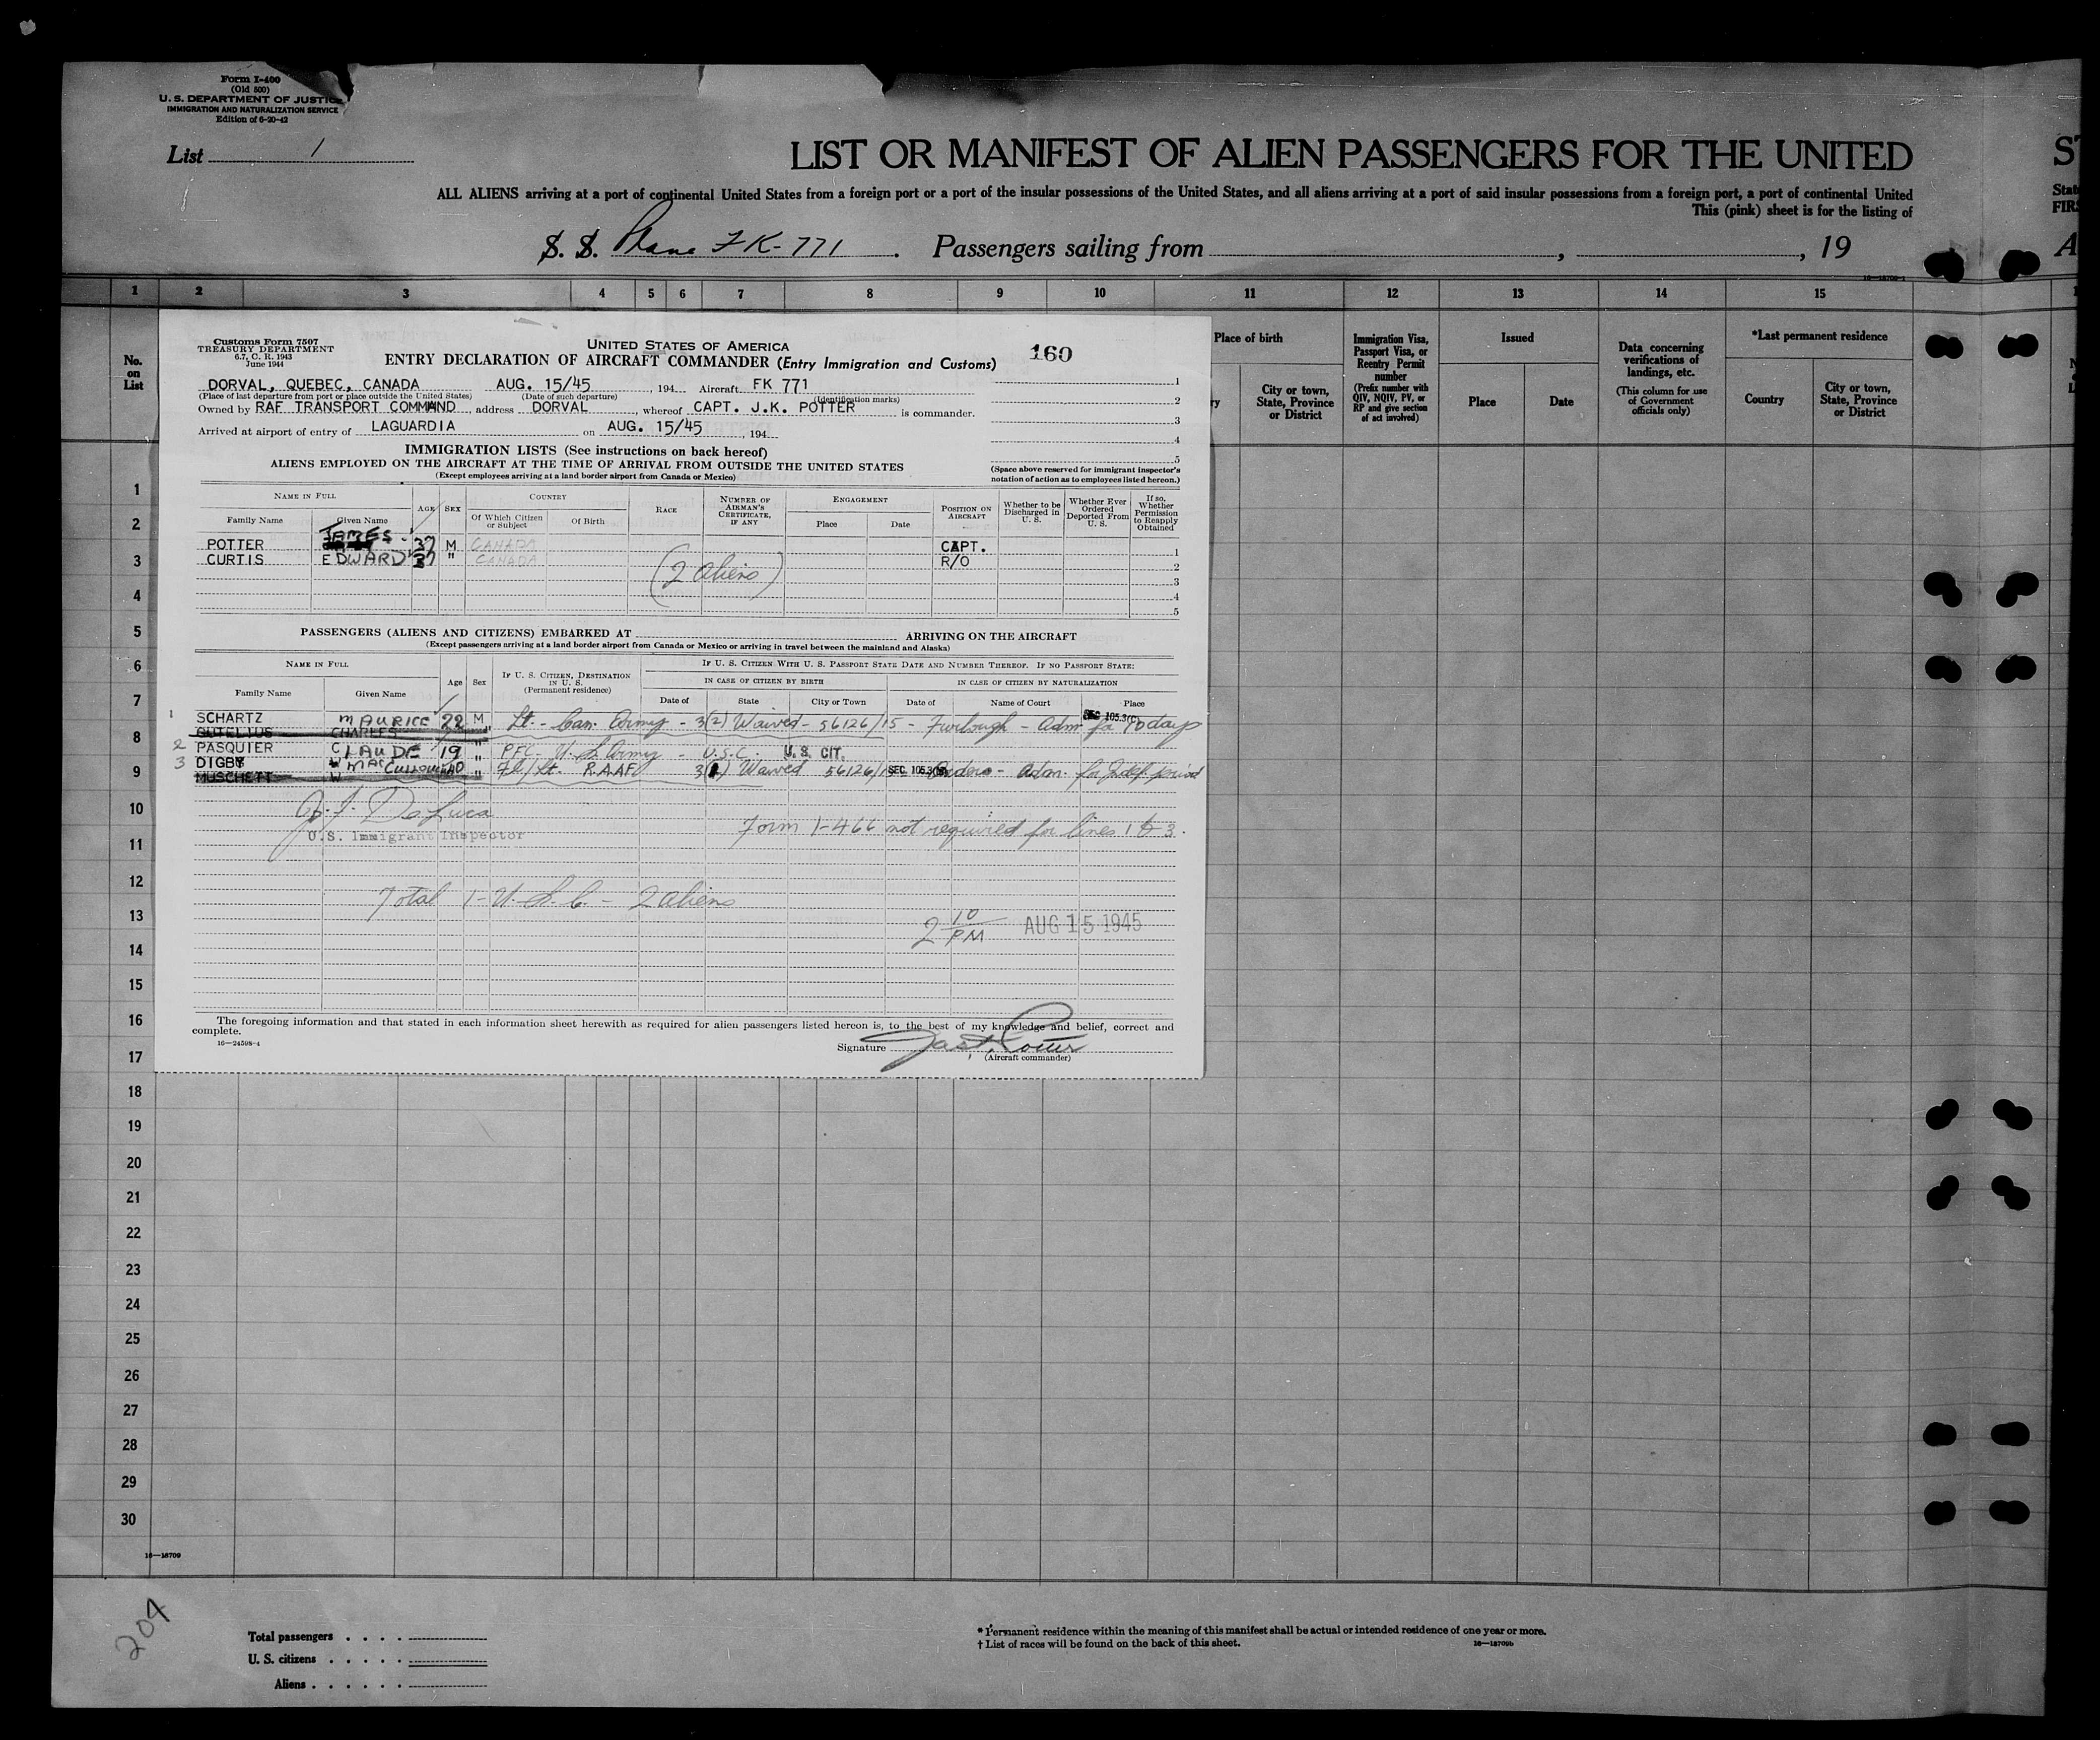 Form I-400
(Old 500)
U. S. DEPARTMENT OF JUSTICE
IMMIGRATION AND NATURALIZATION SERVICE
Edition of 6-20-42
List 1
LIST OR MANIFEST OF ALIEN PASSENGERS FOR THE UNITED
ALL ALIENS arriving at a port of continental United States from a foreign port or a port of the insular possessions of the United States, and all aliens arriving at a port of said insular possessions from a foreign port, a port of continental United
This (pink) sheet is for the listing of
S. S. Plane FK-771. Passengers sailing from , , 19
16—18709-1
1 2 3 4 5 6 7 8 9 10 11 12 13 14 15
No. on List
Place of birth
City or town, State, Province or District
Immigration Visa, Passport Visa, or Reentry Permit number
(Prefix number with QIV, NQIV, PV, or RP and give section of act involved)
Issued
Place Date
Data concerning verifications of landings, etc.
(This column for use of Government officials only)
*Last permanent residence
Country City or town, State, Province or District
Customs Form 7507
TREASURY DEPARTMENT
6.7, C. R. 1943
June 1944
UNITED STATES OF AMERICA
ENTRY DECLARATION OF AIRCRAFT COMMANDER (Entry Immigration and Customs)
160
DORVAL, QUEBEC, CANADA AUG. 15/45, 194 Aircraft FK 771
(Place of last departure from port or place outside the United States) (Date of such departure) (Identification marks)
Owned by RAF TRANSPORT COMMAND, address DORVAL, whereof CAPT. J.K. POTTER is commander.
Arrived at airport of entry of LAGUARDIA on AUG. 15/45, 194
1
2
3
4
5
IMMIGRATION LISTS (See instructions on back hereof)
ALIENS EMPLOYED ON THE AIRCRAFT AT THE TIME OF ARRIVAL FROM OUTSIDE THE UNITED STATES
(Except employees arriving at a land border airport from Canada or Mexico)
(Space above reserved for immigrant inspector's notation of action as to employees listed hereon.)
NAME IN FULL
Family Name Given Name
AGE SEX
COUNTRY
Of Which Citizen or Subject Of Birth
RACE
NUMBER OF AIRMAN'S CERTIFICATE, IF ANY
ENGAGEMENT
Place Date
POSITION ON AIRCRAFT
Whether to be Discharged in U. S.
Whether Ever Ordered Deported From U. S.
If so, Whether Permission to Reapply Obtained
POTTER JAMES 37 M CANADA CAPT. 1
CURTIS EDWARD 37 " CANADA R/O 2
(2 aliens)
3
4
5
PASSENGERS (ALIENS AND CITIZENS) EMBARKED AT ARRIVING ON THE AIRCRAFT
(Except passengers arriving at a land border airport from Canada or Mexico or arriving in travel between the mainland and Alaska)
NAME IN FULL
Family Name Given Name
Age Sex
IF U. S. CITIZEN, DESTINATION IN U. S.
(Permanent residence)
IF U. S. CITIZEN WITH U. S. PASSPORT STATE DATE AND NUMBER THEREOF. IF NO PASSPORT STATE:
IN CASE OF CITIZEN BY BIRTH IN CASE OF CITIZEN BY NATURALIZATION
Date of State City or Town Date of Name of Court Place
1 SCHARTZ MAURICE 22 M Lt. - Can. Army - 3(2) Waived - 56126/15 - Furlough - Adm for 10 days
SEC 105.3(C)
CHARLES
2 PASQUIER CLAUDE 19 " PFC - U.S. Army - U.S.C. U. S. CIT.
3 DIGBY W MacCullough 20 " Fl/Lt. R.A.A.F. 3(1) Waived 56126/ SEC 105.3 Orders - Adm. for Indef. period
MUSCHETT W
J. J. DeLuca
U.S. Immigrant Inspector
Form I-466 not required for lines 1 & 3.
Total 1-U.S.C. - 2 aliens
2 10 PM AUG 15 1945
The foregoing information and that stated in each information sheet herewith as required for alien passengers listed hereon is, to the best of my knowledge and belief, correct and complete.
16—24598-4
Signature Jas. K. Potter
(Aircraft commander)
1
2
3
4
5
6
7
8
9
10
11
12
13
14
15
16
17
18
19
20
21
22
23
24
25
26
27
28
29
30
16—18709
204
Total passengers . . . .
U. S. citizens . . . . .
Aliens . . . . . .
* Permanent residence within the meaning of this manifest shall be actual or intended residence of one year or more.
† List of races will be found on the back of this sheet.
16—18709b